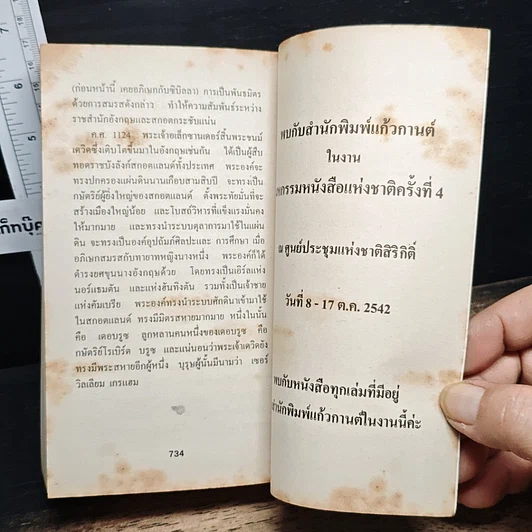 (ก่อนหน้านี้ เคยอภิเษกกับซิบิลลา) การเป็นพันธมิตร
ด้วยการสมรสดังกล่าว ทำให้ความสัมพันธ์ระหว่าง
ราชสำนักอังกฤษและสกอตกระชับแน่น
ค.ศ. 1124 พระเจ้าอเล็กซานเดอร์สิ้นพระชนม์
เดวิดซึ่งเติบโตขึ้นมาในอังกฤษเช่นกัน ได้เป็นผู้สืบ
ทอดราชบัลลังก์สกอตแลนด์ทั้งประเทศ พระองค์จะ
ทรงปกครองแผ่นดินนานเกือบสามสิบปี จะทรงเป็น
กษัตริย์ผู้ยิ่งใหญ่ของสกอตแลนด์ ตั้งพระทัยมั่นที่จะ
สร้างเมืองใหญ่น้อย และโบสถ์วิหารที่แข็งแรงมั่นคง
ให้มากมาย และทรงนำระบบตุลาการมาใช้ในแผ่น
ดิน จะทรงเป็นองค์อุปถัมภ์ศิลปะและ การศึกษา เมื่อ
อภิเษกสมรสกับทายาทหญิงนางหนึ่ง พระองค์ก็ได้
ดำรงยศขุนนางอังกฤษด้วย โดยทรงเป็นเอิร์ลแห่ง
นอร์แธมตัน และแห่งฮันทิงตัน รวมทั้งเป็นเจ้าชาย
แห่งคัมเบรีย พระองค์ทรงนำระบบศักดินาเข้ามาใช้
ในสกอตแลนด์ ทรงมีมิตรสหายมากมาย หนึ่งในนั้น
คือ เดอบรูซ ลูกหลานคนหนึ่งของเดอบรูซ คือ
กษัตริย์โรเบิร์ต บรูซ และแน่นอนว่าพระเจ้าเดวิดยัง
ทรงมีพระสหายอีกผู้หนึ่ง บุรุษผู้นั้นมีนามว่า เซอร์
วิลเลียม เกรแฮม
734
พบกับสำนักพิมพ์แก้วกานต์
ในงาน
กรรมหนังสือแห่งชาติครั้งที่ 4
ณ ศูนย์ประชุมแห่งชาติสิริกิติ์
วันที่ 8 - 17 ต.ค. 2542
พบกับหนังสือทุกเล่มที่มีอยู่
สำนักพิมพ์แก้วกานต์ในงานนี้ค่ะ